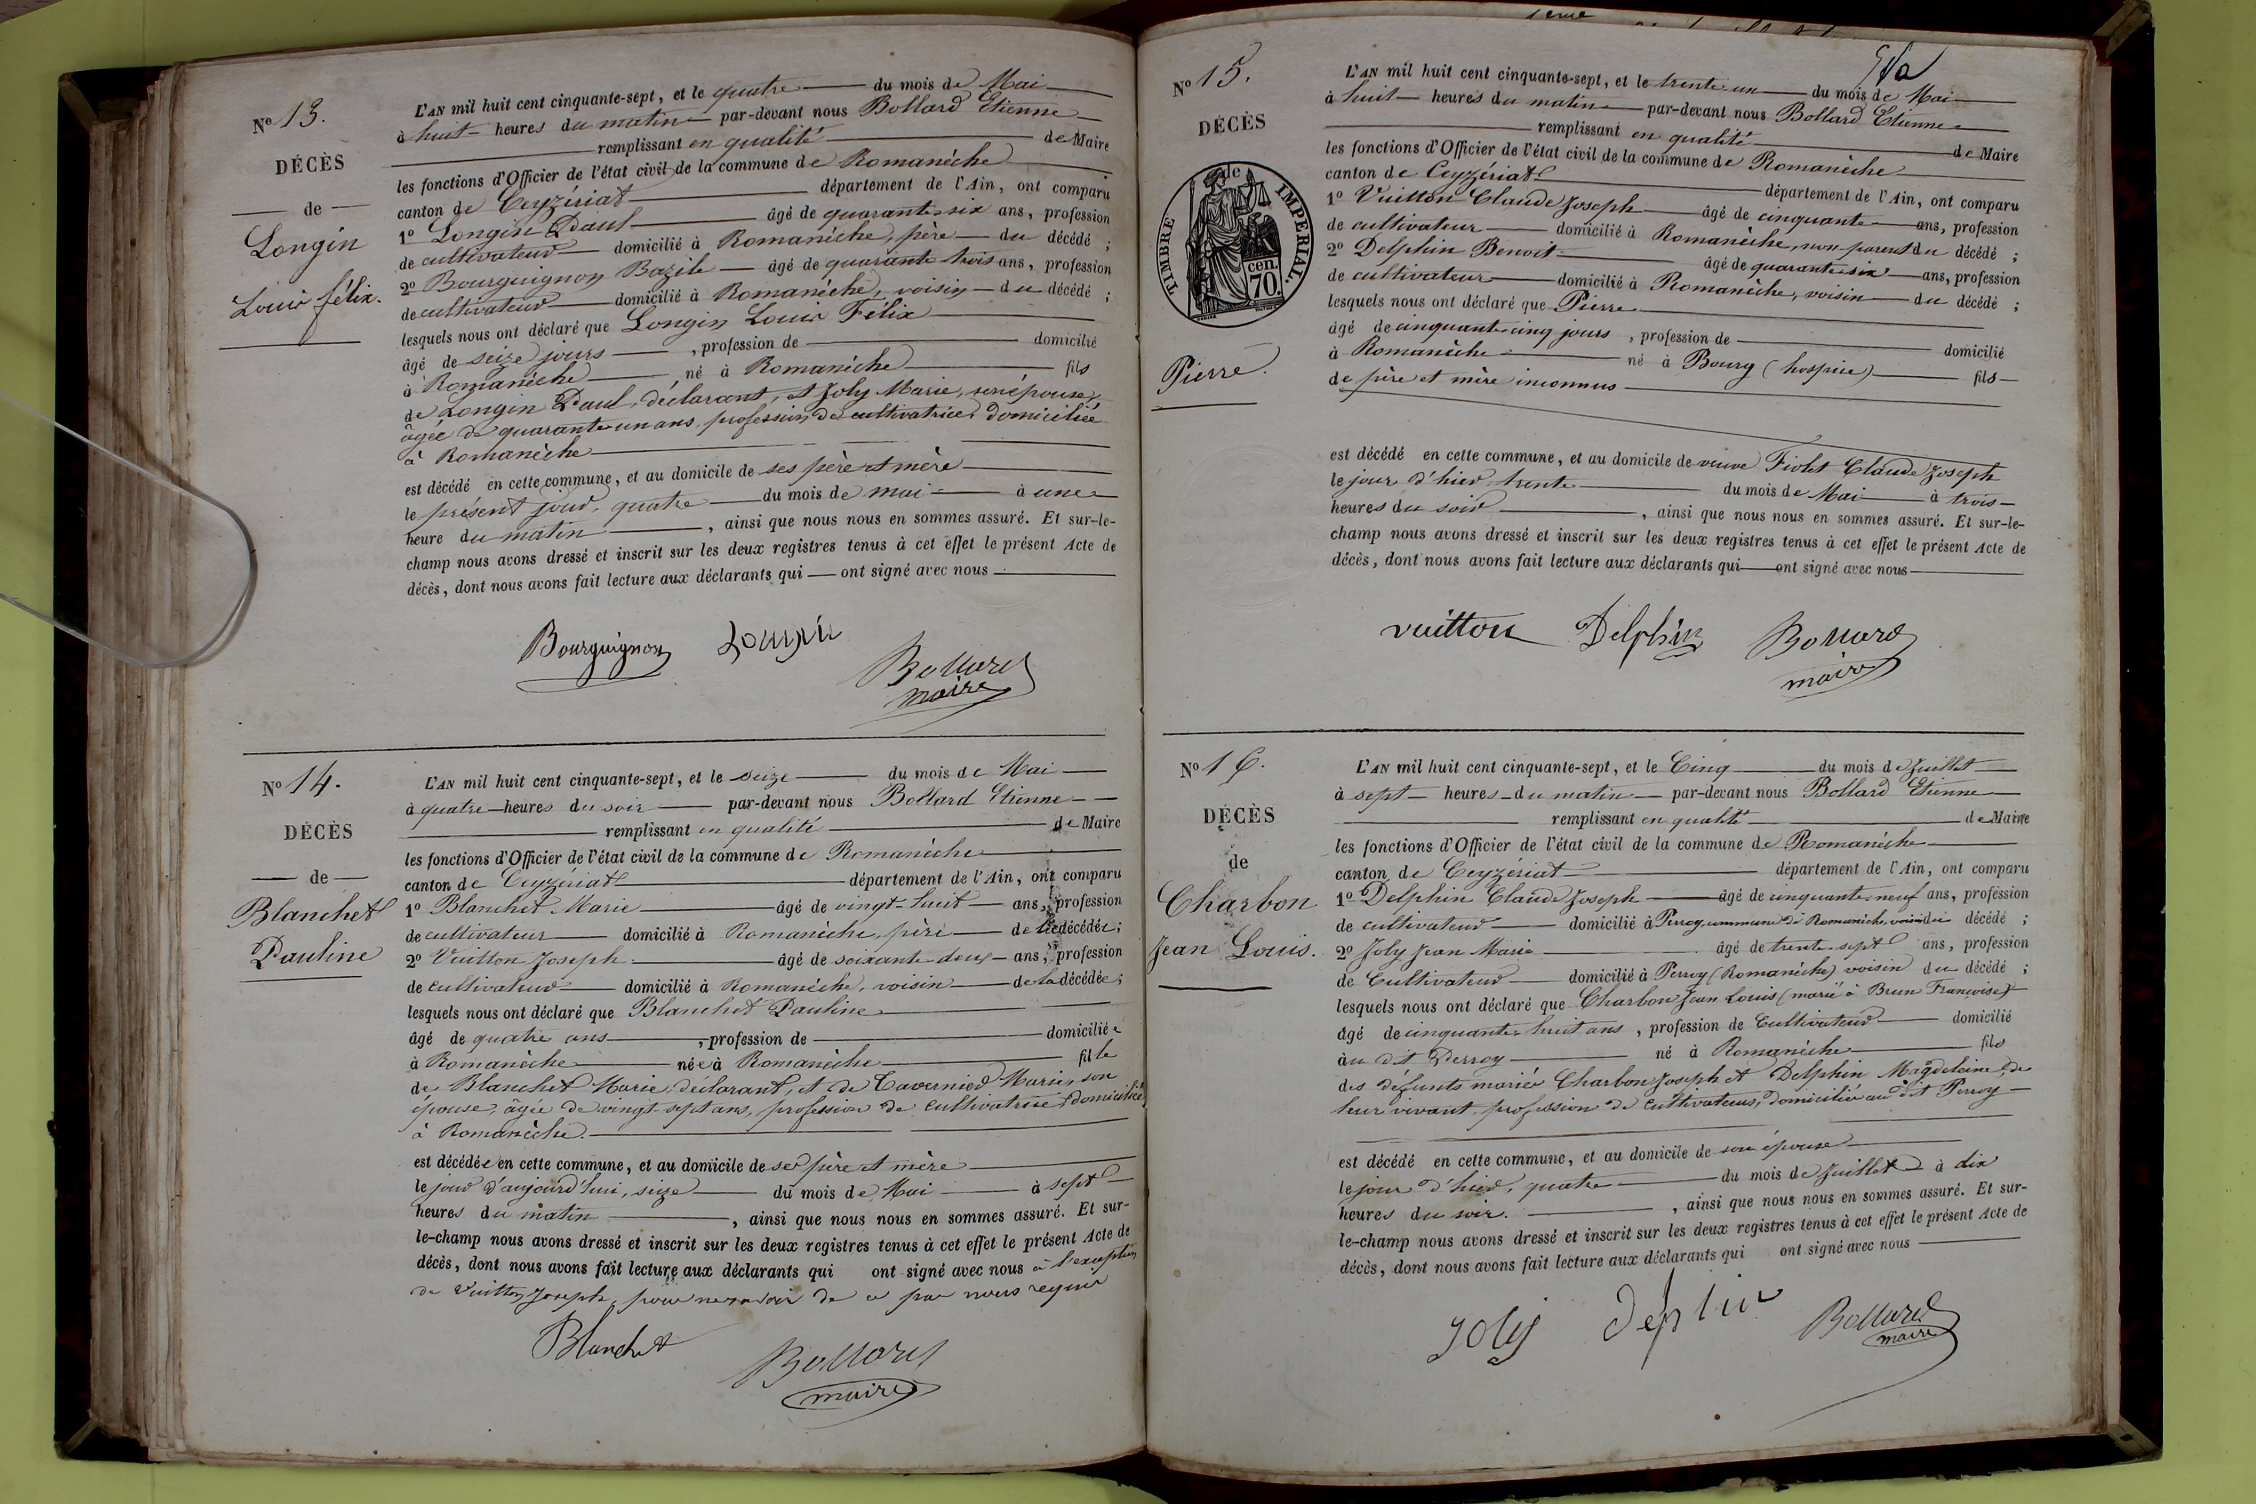 No 13.
DÉCÈS
de
Longin
Louis félix.
L'AN mil huit cent cinquante-sept, et le quatre du mois de Mai
à huit heures du matin par-devant nous Bollard Etienne
remplissant en qualité de Maire
les fonctions d'Officier de l'état civil de la commune de Romanèche
canton de Ceyzériat département de l'Ain, ont comparu
1º Longin Paul âgé de quarante-six ans, profession
de cultivateur domicilié à Romanèche, père du décédé ;
2º Bourguignon Bazile âgé de quarante trois ans, profession
de cultivateur domicilié à Romanèche, voisin du décédé ;
lesquels nous ont déclaré que Longin Louis Félix
âgé de seize jours, profession de domicilié
à Romanèche né à Romanèche fils
de Longin Paul, déclarant, et Joly Marie, son épouse,
âgée de quarante-un ans, profession de cultivatrice, domiciliée
à Romanèche
est décédé en cette commune, et au domicile de ses père et mère
le présent jour, quatre du mois de mai à une
heure du matin, ainsi que nous nous en sommes assuré. Et sur-le-
champ nous avons dressé et inscrit sur les deux registres tenus à cet effet le présent Acte de
décès, dont nous avons fait lecture aux déclarants qui ont signé avec nous
Bourguignon Longin
Bollard
maire
No 14.
DÉCÈS
de
Blanchet
Pauline
L'AN mil huit cent cinquante-sept, et le seize du mois de Mai
à quatre heures du soir par-devant nous Bollard Etienne
remplissant en qualité de Maire
les fonctions d'Officier de l'état civil de la commune de Romanèche
canton de Ceyzériat département de l'Ain, ont comparu
1º Blanchet Marie âgé de vingt-huit ans, profession
de cultivateur domicilié à Romanèche, père de la décédée ;
2º Vuitton Joseph âgé de soixante-deux ans, profession
de cultivateur domicilié à Romanèche, voisin de la décédée ;
lesquels nous ont déclaré que Blanchet Pauline
âgé de quatre ans, profession de domiciliée
à Romanèche née à Romanèche fille
de Blanchet Marie, déclarant, et de Tavernier Marie, son
épouse, âgée de vingt sept ans, profession de cultivatrice, domiciliée
à Romanèche.
est décédée en cette commune, et au domicile de ses père et mère
le jour d'aujourd'hui, seize du mois de Mai à sept
heures du matin, ainsi que nous nous en sommes assuré. Et sur-
le-champ nous avons dressé et inscrit sur les deux registres tenus à cet effet le présent Acte de
décès, dont nous avons fait lecture aux déclarants qui ont signé avec nous à l'exception
de Vuitton Joseph, pour ne savoir de ce par nous requis
Blanchet
Bollard
maire
No 15.
DÉCÈS
de
TIMBRE IMPERIAL.
70. cen.
Pierre.
L'AN mil huit cent cinquante-sept, et le trente un du mois de Mai
à huit heures du matin par-devant nous Bollard Etienne
remplissant en qualité de Maire
les fonctions d'Officier de l'état civil de la commune de Romanèche
canton de Ceyzériat département de l'Ain, ont comparu
1º Vuitton Claude Joseph âgé de cinquante ans, profession
de cultivateur domicilié à Romanèche, non parent du décédé ;
2º Delphin Benoit âgé de quarante-six ans, profession
de cultivateur domicilié à Romanèche, voisin du décédé ;
lesquels nous ont déclaré que Pierre
âgé de cinquante-cinq jours, profession de domicilié
à Romanèche né à Bourg (hospice) fils
de père et mère inconnus
est décédé en cette commune, et au domicile de veuve Fiolet Claude Joseph
le jour d'hier trente du mois de Mai à trois
heures du soir, ainsi que nous nous en sommes assuré. Et sur-le-
champ nous avons dressé et inscrit sur les deux registres tenus à cet effet le présent Acte de
décès, dont nous avons fait lecture aux déclarants qui ont signé avec nous
vuitton Delphin Bollard
maire
No 16.
DÉCÈS
de
Charbon
Jean Louis.
L'AN mil huit cent cinquante-sept, et le Cinq du mois de Juillet
à sept heures du matin par-devant nous Bollard Etienne
remplissant en qualité de Maire
les fonctions d'Officier de l'état civil de la commune de Romanèche
canton de Ceyzériat département de l'Ain, ont comparu
1º Delphin Claude Joseph âgé de cinquante-neuf ans, profession
de cultivateur domicilié à Perroy, commune de Romanèche, voisin du décédé ;
2º Joly Jean Marie âgé de trente-sept ans, profession
de Cultivateur domicilié à Perroy (Romanèche) voisin du décédé ;
lesquels nous ont déclaré que Charbon Jean Louis (marié à Brun Françoise)
âgé de cinquante-huit ans, profession de Cultivateur domicilié
àu dit Perroy né à Romanèche fils
des défunts mariés Charbon Joseph et Delphin Magdeleine, de
leur vivant profession de cultivateurs, domiciliés au dit Perroy
est décédé en cette commune, et au domicile de son épouse
le jour d'hier, quatre du mois de Juillet à dix
heures du soir., ainsi que nous nous en sommes assuré. Et sur-
le-champ nous avons dressé et inscrit sur les deux registres tenus à cet effet le présent Acte de
décès, dont nous avons fait lecture aux déclarants qui ont signé avec nous
Joly Deplin Bollard
maire